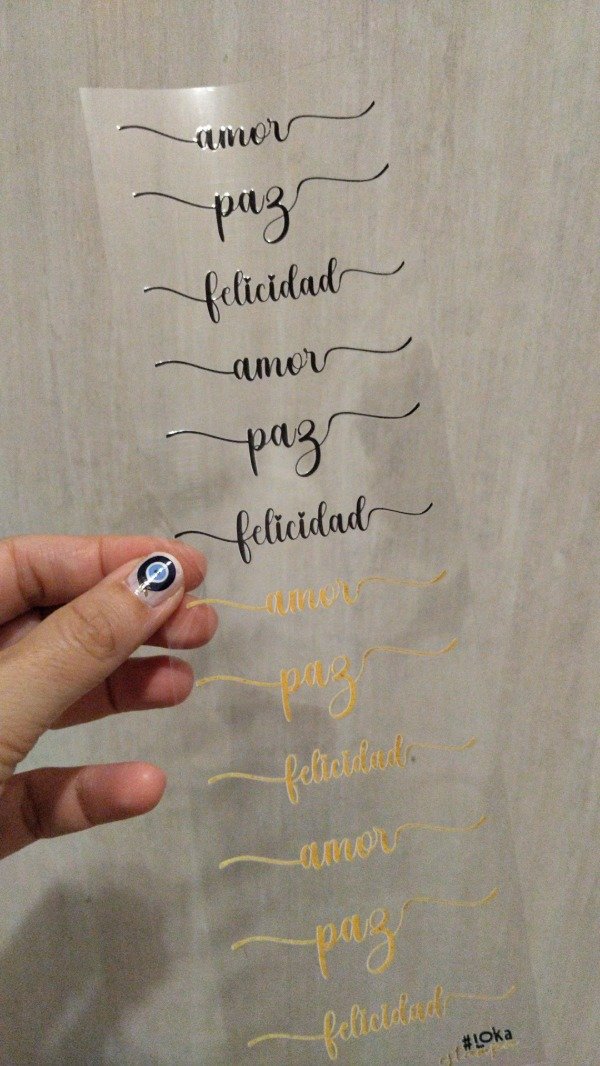 amor
paz
felicidad
amor
paz
felicidad
amor
paz
felicidad
amor
paz
felicidad
#LOKa